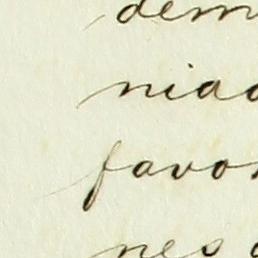 dem
niad
favor
nes